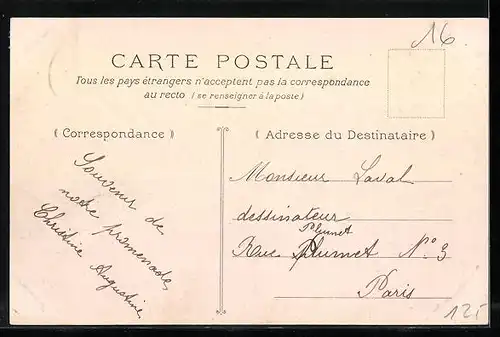 16
CARTE POSTALE
Tous les pays étrangers n'acceptent pas la correspondance
au recto (se renseigner à la poste)
( Correspondance )
Souvenir de
notre promenade,
Christine Augustine
( Adresse du Destinataire )
Monsieur Laval
dessinateur
Plumet
Rue Plumet N° 3
Paris
125